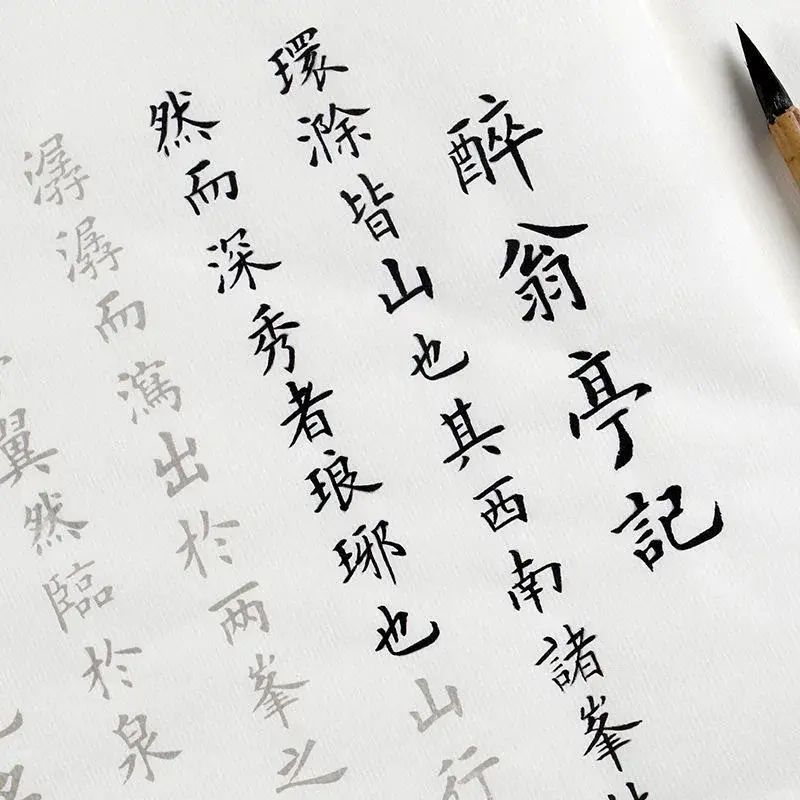 醉翁亭記
環滁皆山也其西南諸峯
然而深秀者琅琊也山行
潺潺而瀉出於两峯之
翼然臨於泉